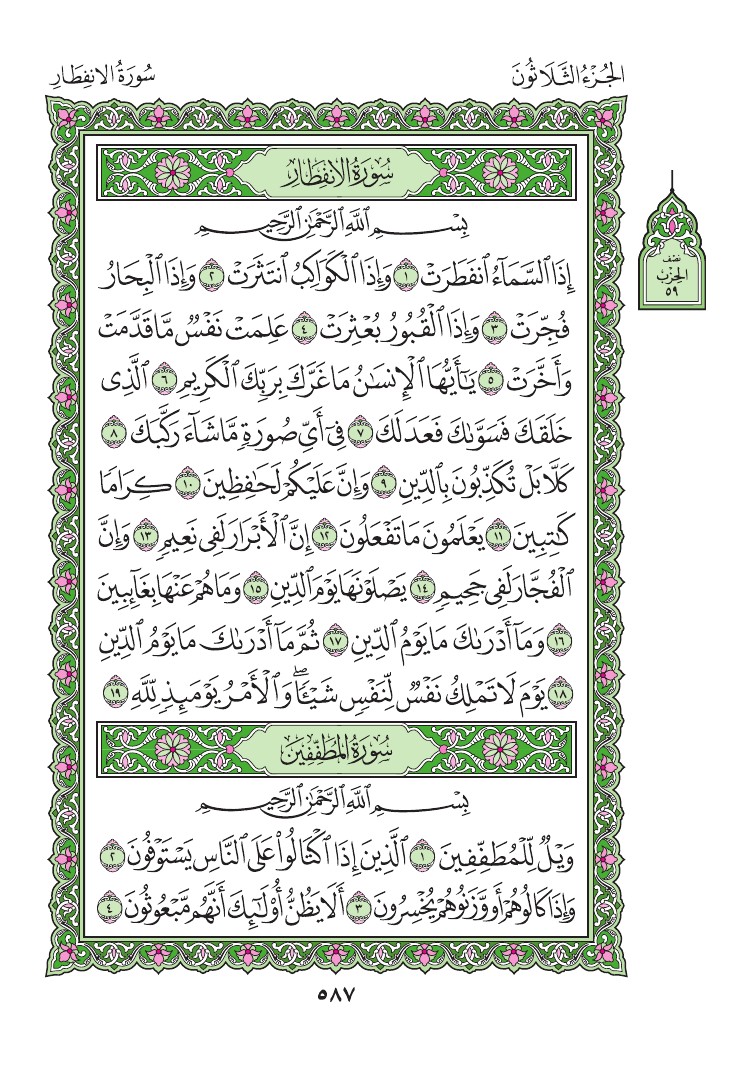 الجُزْءُ الثَّلَاثُونَ
سُورَةُ الانفِطَارِ
نصف
الحزب
٥٩
سُورَةُ الانفِطَارِ
بِسْمِ ٱللَّهِ ٱلرَّحْمَٰنِ ٱلرَّحِيمِ
إِذَا ٱلسَّمَآءُ ٱنفَطَرَتْ ١ وَإِذَا ٱلْكَوَاكِبُ ٱنتَثَرَتْ ٢ وَإِذَا ٱلْبِحَارُ
فُجِّرَتْ ٣ وَإِذَا ٱلْقُبُورُ بُعْثِرَتْ ٤ عَلِمَتْ نَفْسٌ مَّا قَدَّمَتْ
وَأَخَّرَتْ ٥ يَٰٓأَيُّهَا ٱلْإِنسَٰنُ مَا غَرَّكَ بِرَبِّكَ ٱلْكَرِيمِ ٦ ٱلَّذِى
خَلَقَكَ فَسَوَّىٰكَ فَعَدَلَكَ ٧ فِىٓ أَىِّ صُورَةٍ مَّا شَآءَ رَكَّبَكَ ٨
كَلَّا بَلْ تُكَذِّبُونَ بِٱلدِّينِ ٩ وَإِنَّ عَلَيْكُمْ لَحَٰفِظِينَ ١٠ كِرَامًا
كَٰتِبِينَ ١١ يَعْلَمُونَ مَا تَفْعَلُونَ ١٢ إِنَّ ٱلْأَبْرَارَ لَفِى نَعِيمٍ ١٣ وَإِنَّ
ٱلْفُجَّارَ لَفِى جَحِيمٍ ١٤ يَصْلَوْنَهَا يَوْمَ ٱلدِّينِ ١٥ وَمَا هُمْ عَنْهَا بِغَآئِبِينَ
١٦ وَمَآ أَدْرَىٰكَ مَا يَوْمُ ٱلدِّينِ ١٧ ثُمَّ مَآ أَدْرَىٰكَ مَا يَوْمُ ٱلدِّينِ
١٨ يَوْمَ لَا تَمْلِكُ نَفْسٌ لِّنَفْسٍ شَيْـًٔا ۖ وَٱلْأَمْرُ يَوْمَئِذٍ لِّلَّهِ ١٩
سُورَةُ المُطَفِّفِينَ
بِسْمِ ٱللَّهِ ٱلرَّحْمَٰنِ ٱلرَّحِيمِ
وَيْلٌ لِّلْمُطَفِّفِينَ ١ ٱلَّذِينَ إِذَا ٱكْتَالُوا۟ عَلَى ٱلنَّاسِ يَسْتَوْفُونَ ٢
وَإِذَا كَالُوهُمْ أَو وَّزَنُوهُمْ يُخْسِرُونَ ٣ أَلَا يَظُنُّ أُو۟لَٰٓئِكَ أَنَّهُم مَّبْعُوثُونَ ٤
٥٨٧